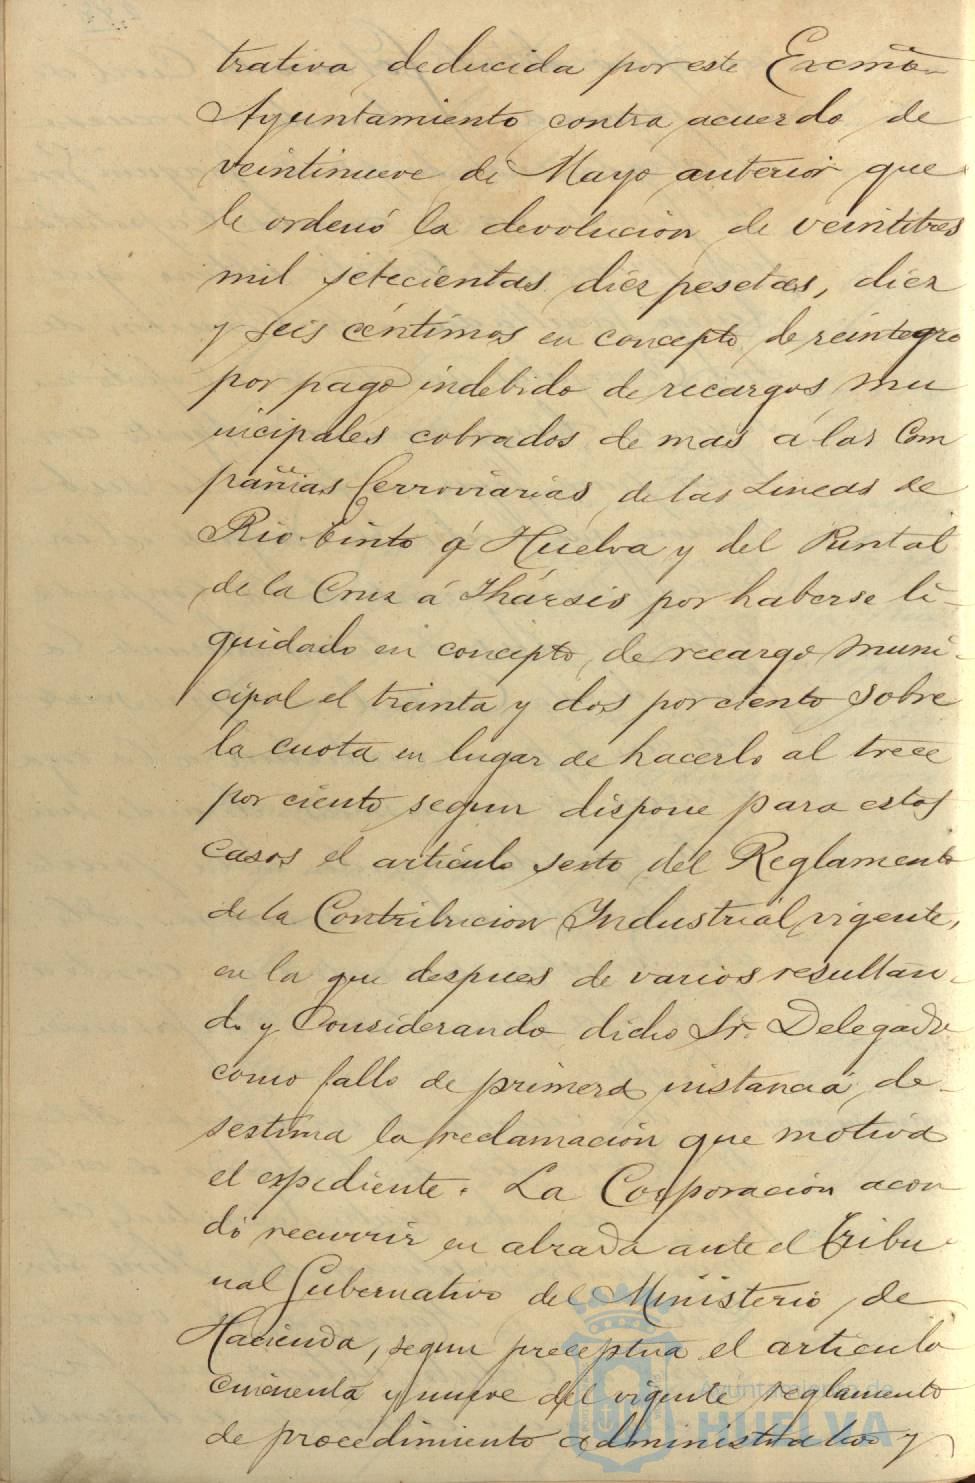 trativa deducida por este Excmo.
Ayuntamiento contra acuerdo de
veintinueve de Mayo anterior que
le ordenó la devolucion de veintitres
mil setecientas diez pesetas, diez
y seis centimos en concepto de reintegro
por pago indebido de recargos mu
nicipales cobrados de mas á las Com
pañias ferroviarias de las Lineas de
Rio-tinto á Huelva y del Puntal
de la Cruz á Thársis por haberse li-
quidado en concepto de recargo muni-
cipal el treinta y dos por ciento sobre
la cuota en lugar de hacerlo al trece
por ciento segun dispone para estos
casos el articulo sesto del Reglamento
de la Contribucion Industrial vigente,
en la que despues de varios resultan-
do y Considerando dicho Sr. Delegado
como fallo de primera instancia, de-
sestima la reclamación que motiva
el expediente. La Corporación acor
dó recurrir en alzada ante el tribu-
nal Gubernativo del Ministerio de
Hacienda, segun preceptua el articulo
cincuenta y nueve del vigente reglamento
de procedimiento administrativo y
Ayuntamiento de
HUELVA